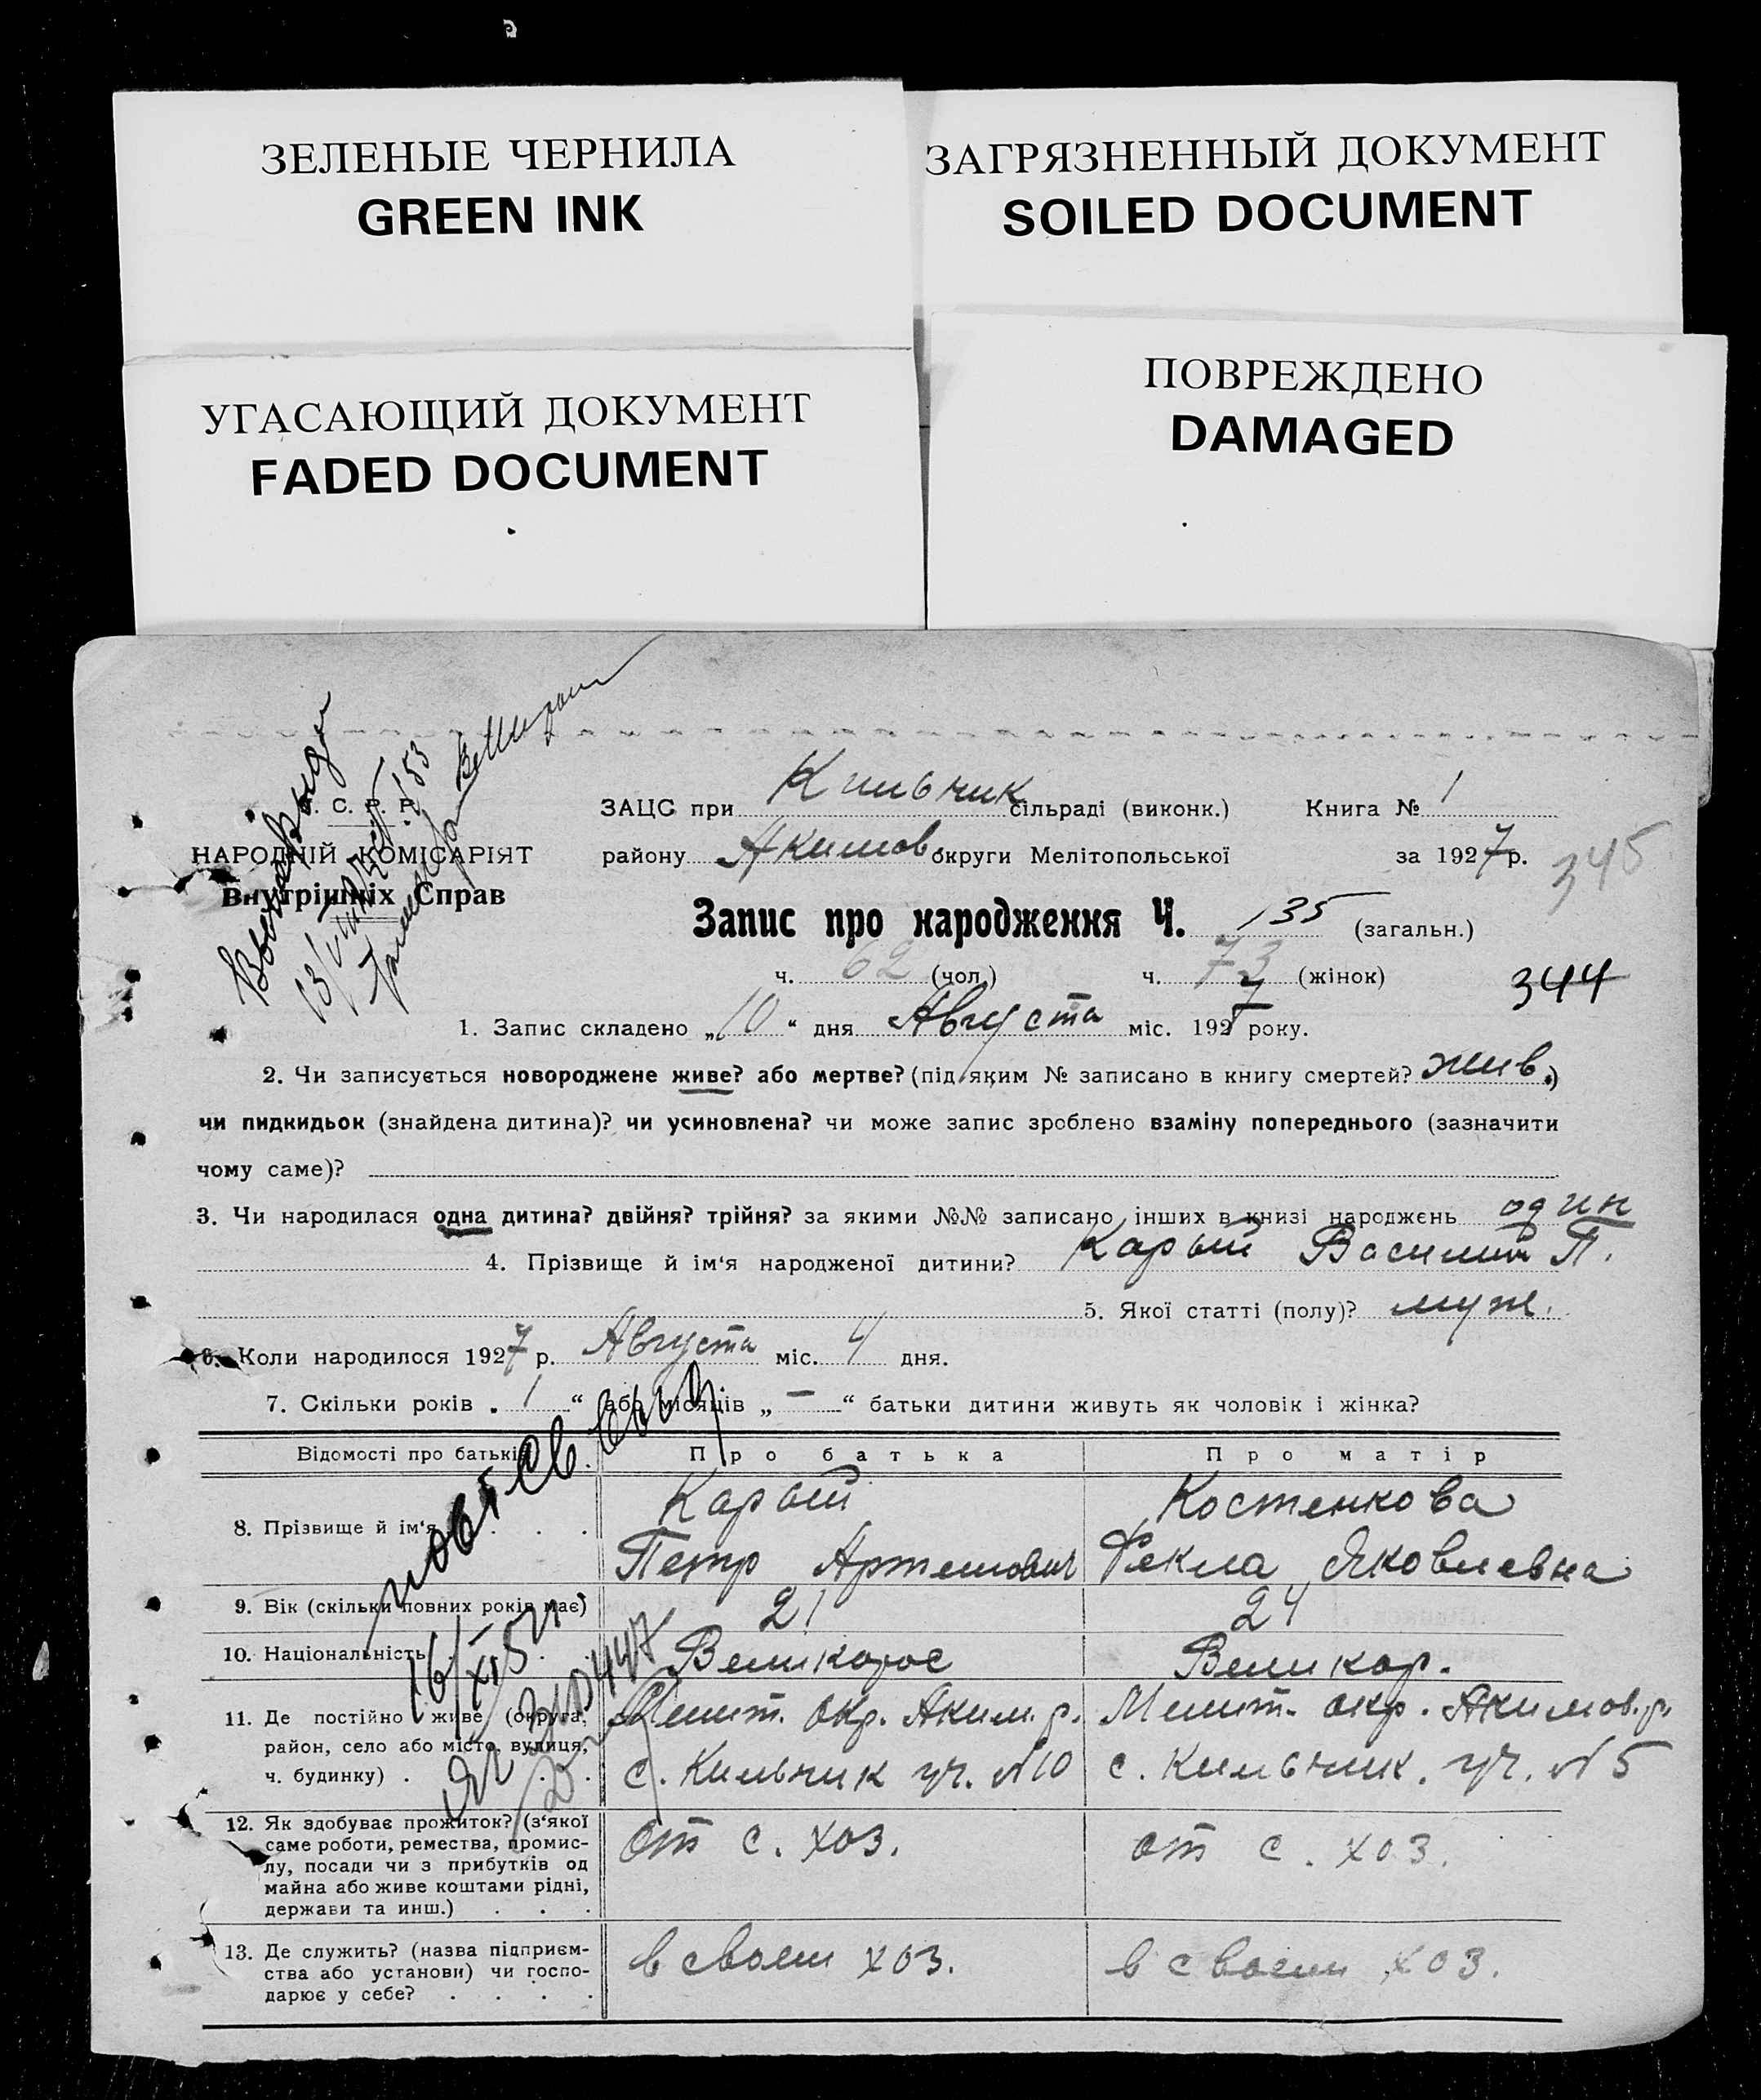 ЗЕЛЕНЫЕ ЧЕРНИЛА
GREEN INK
ЗАГРЯЗНЕННЫЙ ДОКУМЕНТ
SOILED DOCUMENT
УГАСАЮЩИЙ ДОКУМЕНТ
FADED DOCUMENT
ПОВРЕЖДЕНО
DAMAGED
С. Р. Р.
НАРОДНІЙ КОМІСАРІЯТ
Внутрішніх Справ
ЗАЦС при Кильчик сільраді (виконк.) Книга № 1
району Акимов округи Мелітопольської за 1927 р.
345
Запис про народження Ч. 135 (загальн.)
ч. 62 (чол.) ч. 73 (жінок)
344
1. Запис складено „10“ дня Августа міс. 1927 року.
2. Чи записується новороджене живе? або мертве? (під яким № записано в книгу смертей? жив.)
чи пидкидьок (знайдена дитина)? чи усиновлена? чи може запис зроблено взаміну попереднього (зазначити
чому саме)?
3. Чи народилася одна дитина? двійня? трійня? за якими №№ записано інших в книзі народжень один
4. Прізвище й ім‘я народженої дитини? Карый Василий П.
5. Якої статті (полу)? муж.
6. Коли народилося 1927 р. Августа міс. 4 дня.
7. Скільки років „1“ або місяців „—“ батьки дитини живуть як чоловік і жінка?
Відомості про батьків Про батька Про матір
8. Прізвище й ім‘я . . . Карый Костенкова
Петр Артемович Фекла Яковлевна
9. Вік (скільки повних років має) 21 24
10. Національність . . Великорос Великор.
11. Де постійно живе (округа, Мелит. окр. Аким. р. Мелит. окр. Акимов. р.
район, село або місто, вулиця,
ч. будинку) . . . с. Кильчик уч. №10 с. Кильчик. уч. №5
12. Як здобуває прожиток? (з‘якої
саме роботи, ремества, промис- от с. хоз. от с. хоз.
лу, посади чи з прибутків од
майна або живе коштами рідні,
держави та инш.) . . .
13. Де служить? (назва підприєм- в своем хоз. в своем хоз.
ства або установи) чи госпо-
дарює у себе? . . . .